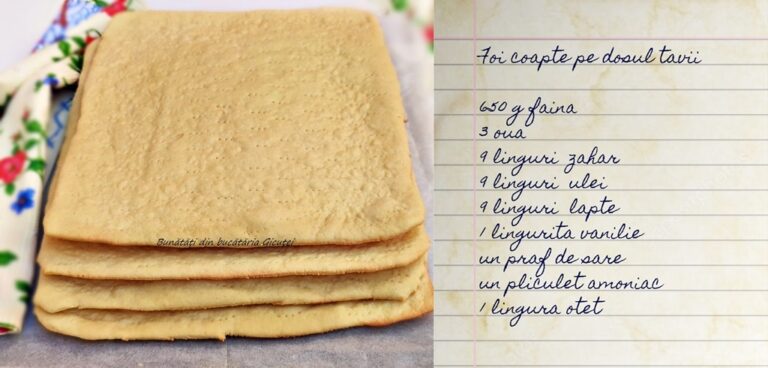 Bunătăți din bucătăria Gicuței
Foi coapte pe dosul tavii
650 g faina
3 oua
9 linguri zahar
9 linguri ulei
9 linguri lapte
1 lingurita vanilie
un praf de sare
un pliculet amoniac
1 lingura otet